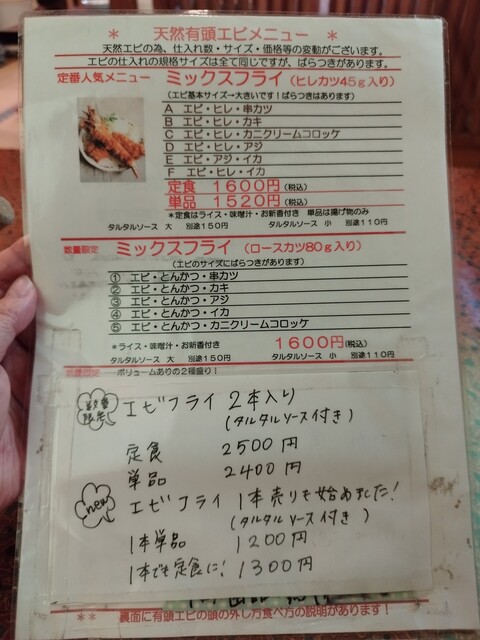 ＊ 天然有頭エビメニュー ＊
天然エビの為、仕入れ数・サイズ・価格等の変動がございます。
エビの仕入れの規格サイズは全て同じですが、ばらつきがあります。
定番人気メニュー ミックスフライ (ヒレカツ45g入り)
(エビ基本サイズ→大きいです！ばらつきはあります)
A エビ・ヒレ・串カツ
B エビ・ヒレ・カキ
C エビ・ヒレ・カニクリームコロッケ
D エビ・ヒレ・アジ
E エビ・アジ・イカ
F エビ・ヒレ・イカ
定食 1600円(税込)
単品 1520円(税込)
＊定食はライス・味噌汁・お新香付き 単品は揚げ物のみ
タルタルソース 大 別途150円 タルタルソース 小 別途110円
数量限定 ミックスフライ (ロースカツ80g入り)
(エビのサイズにばらつきがあります)
① エビ・とんかつ・串カツ
② エビ・とんかつ・カキ
③ エビ・とんかつ・アジ
④ エビ・とんかつ・イカ
⑤ エビ・とんかつ・カニクリームコロッケ
＊ライス・味噌汁・お新香付き 1600円(税込)
タルタルソース 大 別途150円 タルタルソース 小 別途110円
数量限定 ボリュームありの2種盛り！
数量限定 エビフライ 2本入り
(タルタルソース付き)
定食 2500円
単品 2400円
new エビフライ 1本売りも始めました！
(タルタルソース付き)
1本単品 1200円
1本でも定食に！ 1300円
＊＊ 裏面に有頭エビの頭の外し方食べ方の説明があります！